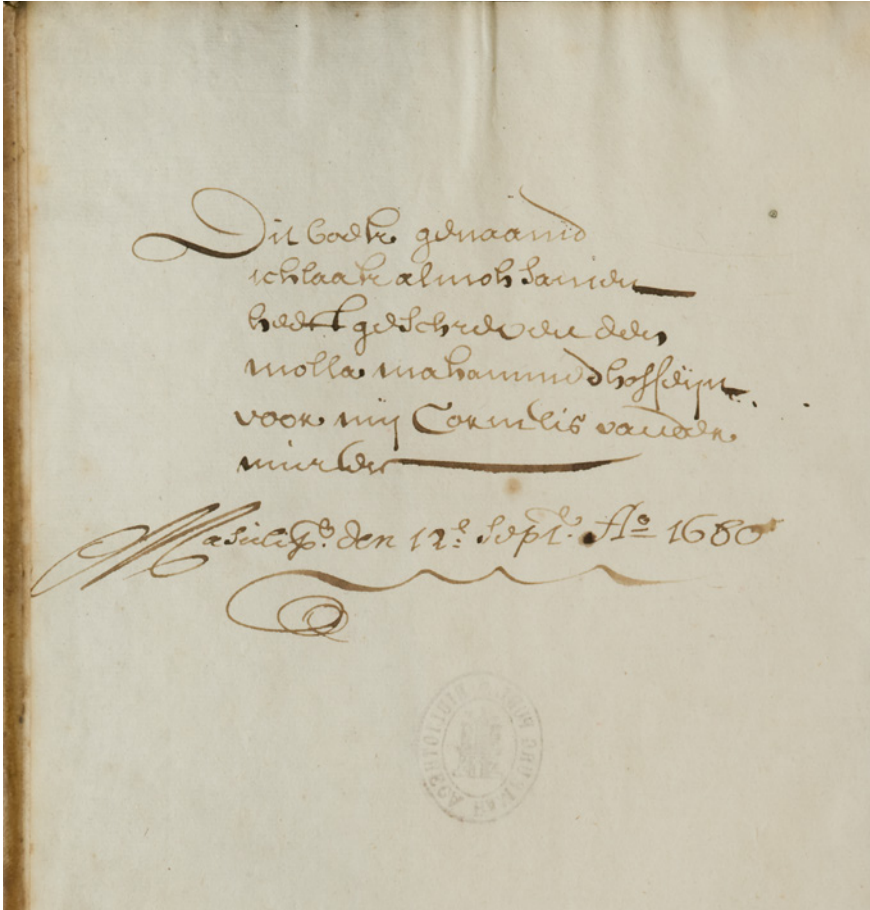 Dit boek genaamd
ichlaak almoh Sanien
heeft geschreven den
molla mahammed hosseijn
voor mij Cornelis vander
murden
Masulip:^m den 12:^e Sept:^r A^o 1680